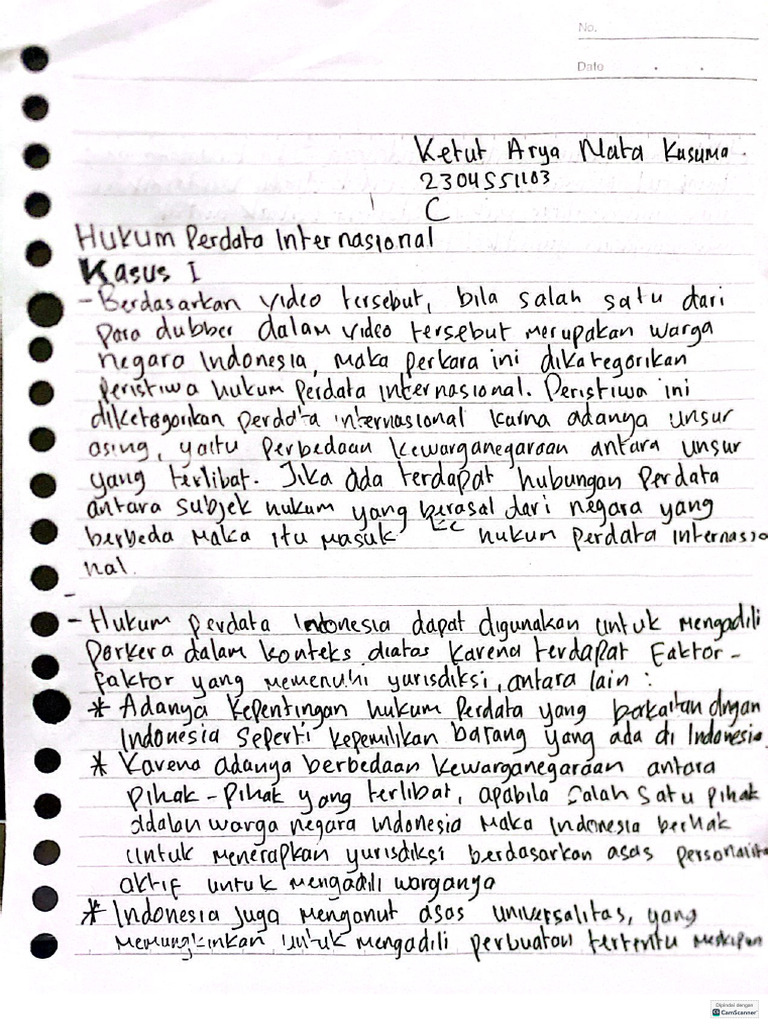 No.
Date . .
Ketut Arya Nata Kusuma.
2304551103
C
Hukum Perdata Internasional
Kasus I
- Berdasarkan video tersebut, bila salah satu dari
para dubber dalam video tersebut merupakan warga
negara Indonesia, maka perkara ini dikategorikan
peristiwa hukum perdata internasional. Peristiwa ini
diketegorikan perdata internasional karna adanya unsur
asing, yaitu perbedaan kewarganegaraan antara unsur
yang terlibat. Jika ada terdapat hubungan perdata
antara subjek hukum yang berasal dari negara yang
berbeda maka itu masuk ke hukum perdata internasio
nal.
-
- Hukum perdata Indonesia dapat digunakan untuk mengadili
perkera dalam konteks diatas karena terdapat faktor-
faktor yang memenuhi yurisdiksi, antara lain :
* Adanya kepentingan hukum perdata yang berkaitan dngan
Indonesia seperti kepemilikan barang yang ada di Indonesia
* Karena adanya berbedaan kewarganegaraan antara
pihak-pihak yang terlibat, apabila salah satu pihak
adalah warga negara indonesia maka Indonesia berhak
untuk menerapkan yurisdiksi berdasarkan asas personalita
aktif untuk mengadili warganya
* Indonesia juga menganut asas universalitas, yang
memungkinkan untuk mengadili perbuatan tertentu meskipun
Dipindai dengan
CS CamScanner